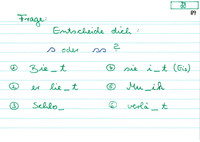 Frage:
Entscheide dich:
s oder ss ?
① Bie_t ④ sie i_t (Eis)
② er lie_t ⑤ Mu_ik
③ Schlo_ ⑥ verlä_t